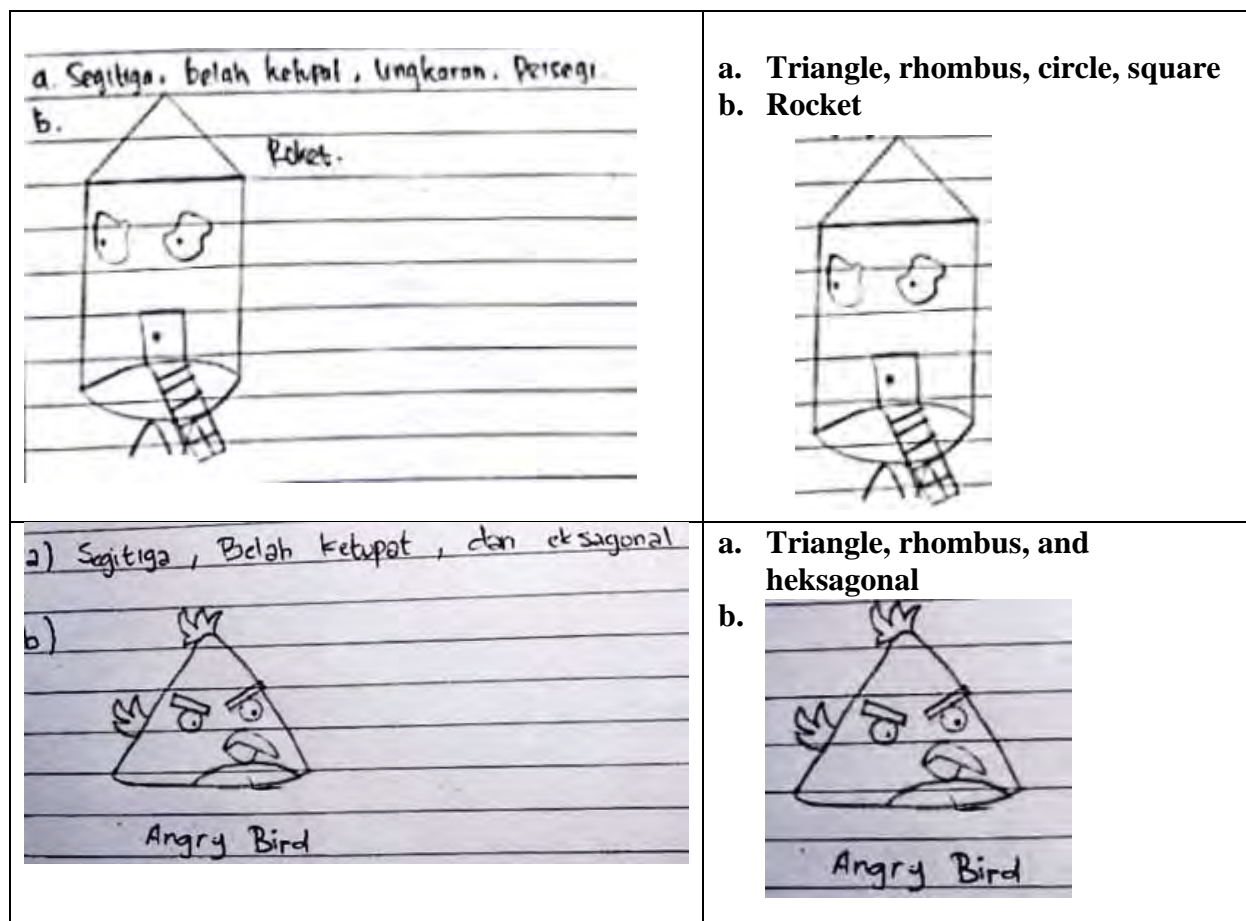 a. Segitiga, belah ketupat, lingkaran, Persegi
b.
Roket.
a. Triangle, rhombus, circle, square
b. Rocket
a) Segitiga, Belah ketupat, dan eksagonal
b)
Angry Bird
a. Triangle, rhombus, and
heksagonal
b.
Angry Bird